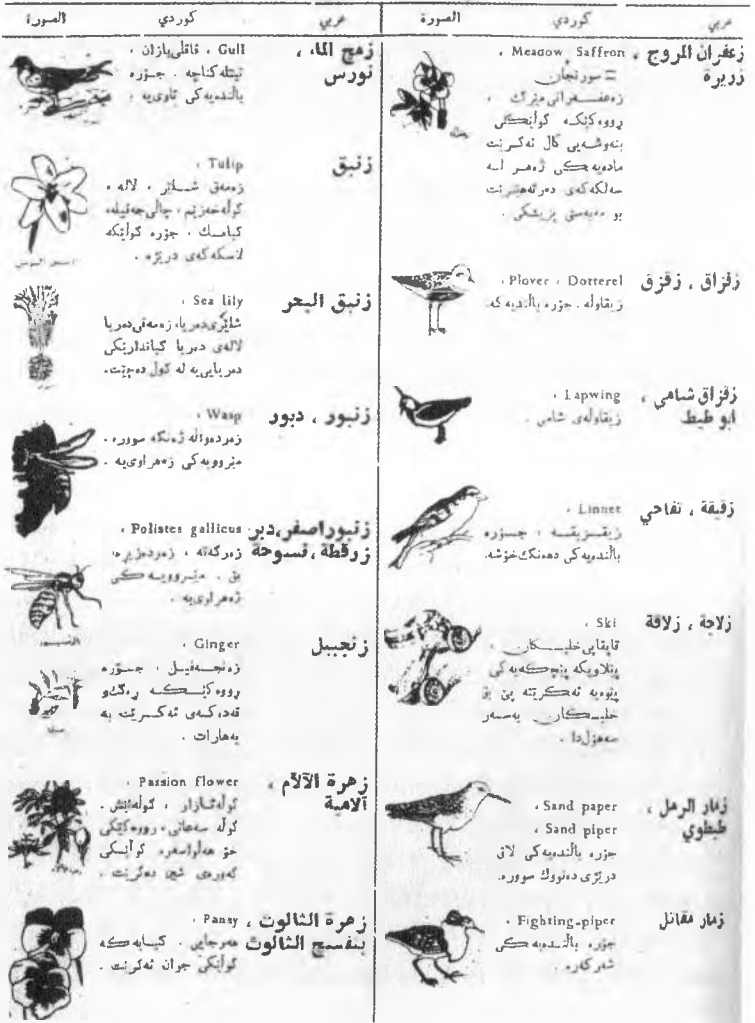 عربي كوردي الصورة
زعفران المروج ،
زريرة
Meadow Saffron ،
= سورنجان
زەعفــەرانی مێرگ ،
ڕووەکێکە گوڵێکی
بنەوشەیی کاڵ ئەگرێت
مادەیەکی ژەهر لە
سەلکەکەی دەرئەهێنرێت
بو مەبەستی پزیشکی .
زقزاق ، زقزق
Plover ، Dotterel ،
زیقاوڵە . جۆرە باڵندیەکە.
زقزاق شامي ،
ابو طيط
Lapwing ،
زیقاوڵەی شامی .
زقيقة ، تفاحي
Linnet ،
زیقــزیقــە ، جــۆرە
باڵندەیەکی دەنگ خۆشە.
زلاجة ، زلاقة
Ski ،
قاپقاپی خلیسکان .
پێلاویکە
پێوە ئەکرێتە پێ بۆ
خلیسکان بەسەر
سەهۆڵدا .
زمار الرمل ،
طيطوي
Sand paper ،
Sand piper ،
جۆرە باڵندەیەکی لاق
درێژی دەنووك سوورە.
زمار مقاتل
Fighting-piper ،
جۆرە باڵندەیەکی
شەرکەرە .
عربي كوردي الصورة
زمج الماء ،
نورس
Gull ، قاقڵی بازان ،
جــۆرە
باڵندەیەکی ئاوی یە .
زنبق
Tulip ،
زەمەق لالە ،
جۆرە گوڵێکە
لاسکەکەی درێژە .
زنبق البحر
Sea lily ،
دەریا، زەمەقی دەریا
لالەی دەریا گیاندارێکی
دەریایی یە لە گوڵ دەچێت.
زنبور ، دبور
Wasp ،
زەردەواڵە ژەنگە سوورە .
مێروویەکی ژەهراوی یە .
زنبور اصفر،دبر
زرقطة ،نسوحة
Polistes gallicus ،
زەرگەتە ، زەردەزیرە،
بق . مێــروویــەکی
ژەهراوی یە .
زنجبيل
Ginger ،
زەنجــەفیــل ، جــۆرە
ڕووەکێــکــە ڕەگ و
قەدەکەی ئەکــرێت بە
بەهارات .
زهرة الآلام ،
الامية
Passion flower ،
ڕووەکێکی
خۆ هەڵواسەرە گوڵێکی
گەورەی شین دەگرێت .
زهرة الثالوث ،
بنفسج الثالوث
Pansy ،
هەرجایی . گیــایەکە
گوڵێکی جوان ئەگرێت .